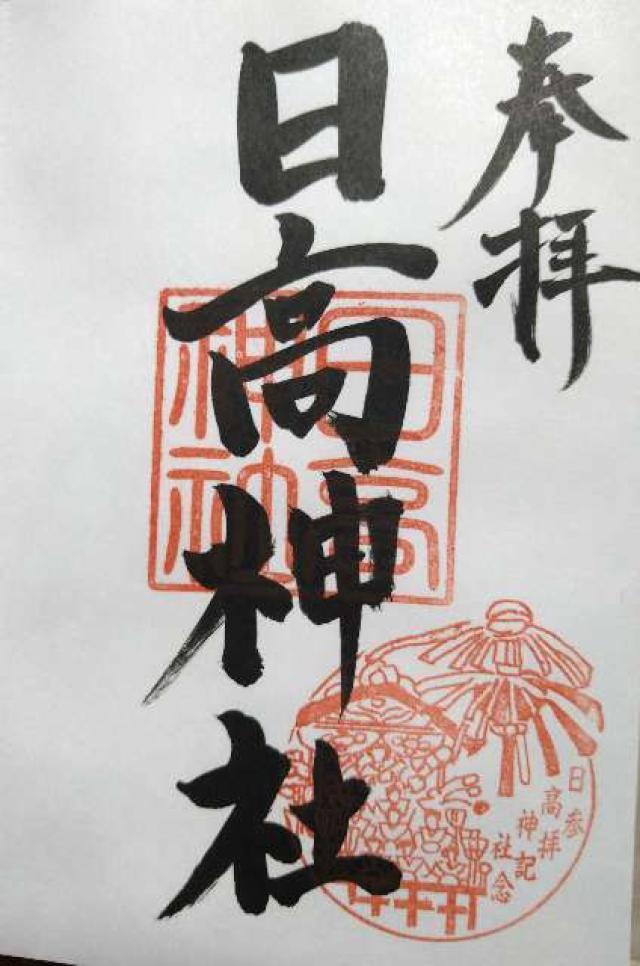 奉拝
日高神社
日高
神社
参拝記念
日高神社